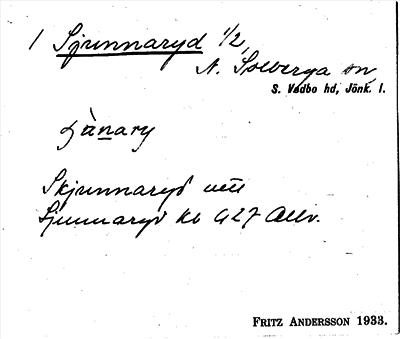 1 Sjunnaryd 1/2,
N. Solberga sn,
S. Vedbo hd, Jönk. l.
jànary
Skjunnaryd utt
Sjunnaryd kb G 27 Allv.
FRITZ ANDERSSON 1933.